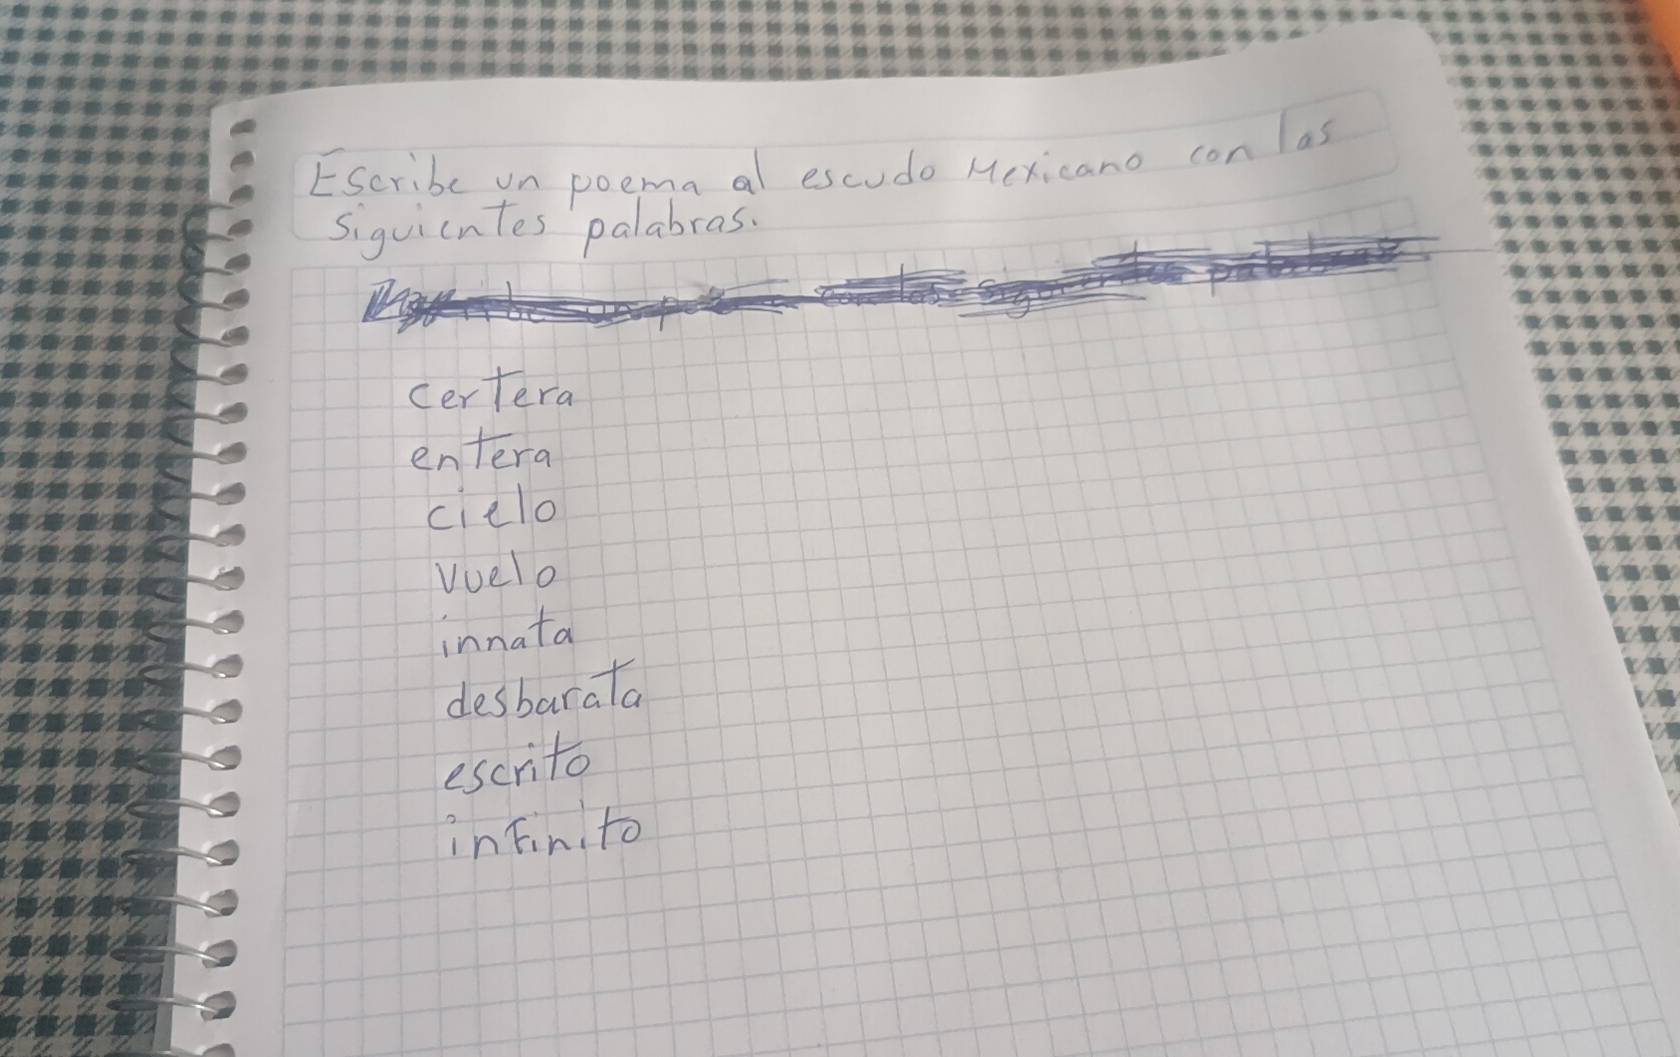 Escribe un poema al escudo Mexicano con las
siguientes palabras.
certera
entera
cielo
vuelo
innata
desbarata
escrito
infinito